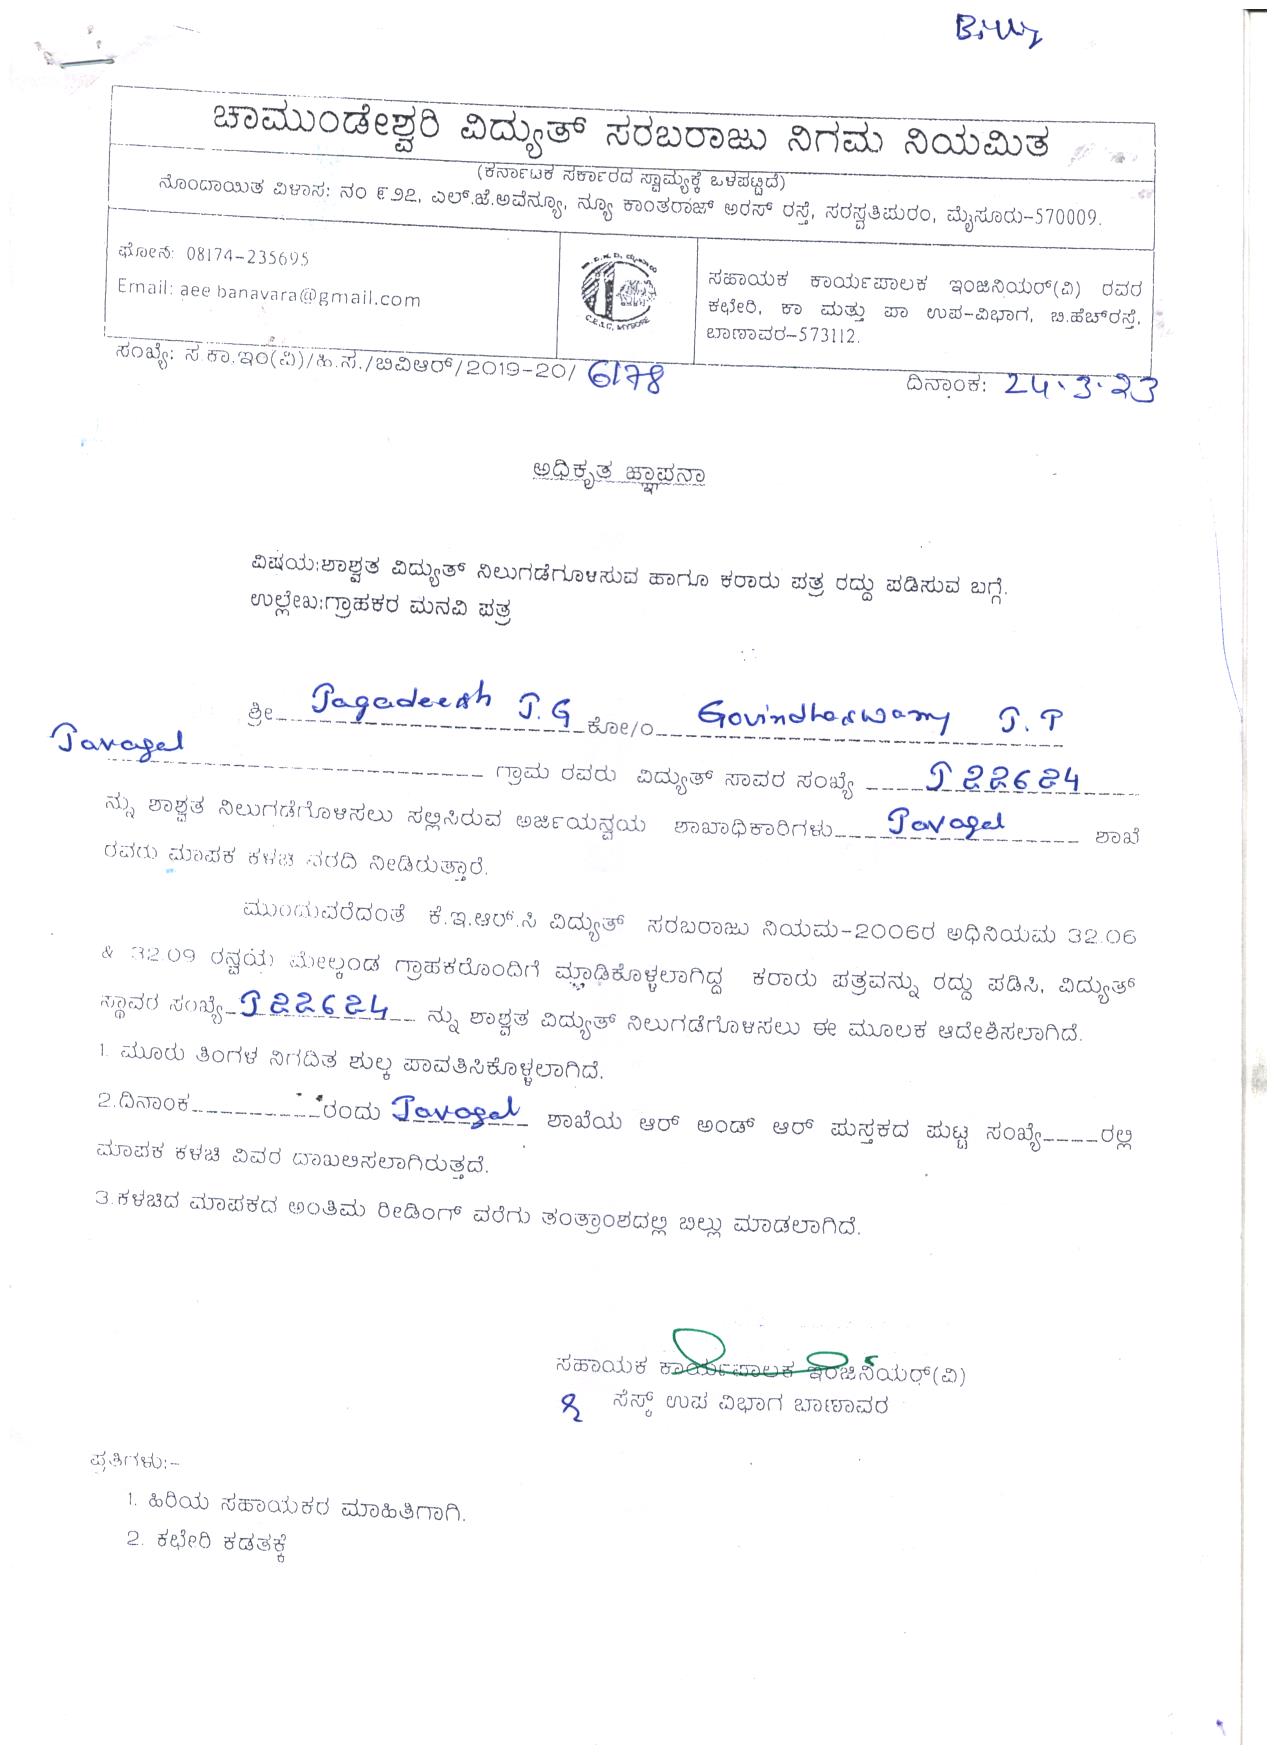 ಚಾಮುಂಡೇಶ್ವರಿ ವಿದ್ಯುತ್ ಸರಬರಾಜು ನಿಗಮ ನಿಯಮಿತ
(ಕರ್ನಾಟಕ ಸರ್ಕಾರದ ಸ್ವಾಮ್ಯಕ್ಕೆ ಒಳಪಟ್ಟಿದೆ)
ನೊಂದಾಯಿತ ವಿಳಾಸ: ನಂ ೯೨೭, ಎಲ್.ಜೆ.ಅವೆನ್ಯೂ, ನ್ಯೂ ಕಾಂತರಾಜ್ ಅರಸ್ ರಸ್ತೆ, ಸರಸ್ವತಿಪುರಂ, ಮೈಸೂರು-570009.
ಫೋನ್: 08174-235695
Email: aee banavara@gmail.com
C.E.S.C, MYSORE
ಸಹಾಯಕ ಕಾರ್ಯಪಾಲಕ ಇಂಜಿನಿಯರ್(ವಿ) ರವರ
ಕಛೇರಿ, ಕಾ ಮತ್ತು ಪಾ ಉಪ-ವಿಭಾಗ, ಬಿ.ಹೆಚ್‌ರಸ್ತೆ,
ಬಾಣಾವರ-573112.
ಸಂಖ್ಯೆ: ಸ.ಕಾ.ಇಂ(ವಿ)/ಹಿ.ಸ./ಬಿವಿಆರ್/2019-20/ 6178
ದಿನಾಂಕ: 24.3.23
ಅಧಿಕೃತ ಜ್ಞಾಪನಾ
ವಿಷಯ:ಶಾಶ್ವತ ವಿದ್ಯುತ್ ನಿಲುಗಡೆಗೊಳಿಸುವ ಹಾಗೂ ಕರಾರು ಪತ್ರ ರದ್ದು ಪಡಿಸುವ ಬಗ್ಗೆ.
ಉಲ್ಲೇಖ:ಗ್ರಾಹಕರ ಮನವಿ ಪತ್ರ
ಶ್ರೀ Jagadeesh J.G ಕೋ/ಂ Govindhaswamy J.P
Javagal ಗ್ರಾಮ ರವರು ವಿದ್ಯುತ್ ಸಾವರ ಸಂಖ್ಯೆ J22624
ನ್ನು ಶಾಶ್ವತ ನಿಲುಗಡೆಗೊಳಿಸಲು ಸಲ್ಲಿಸಿರುವ ಅರ್ಜಿಯನ್ವಯ ಶಾಖಾಧಿಕಾರಿಗಳು Javagal ಶಾಖೆ
ರವರು ಮಾಪಕ ಕಳಚಿ ವರದಿ ನೀಡಿರುತ್ತಾರೆ.
ಮುಂದುವರೆದಂತೆ ಕೆ.ಇ.ಆರ್.ಸಿ ವಿದ್ಯುತ್ ಸರಬರಾಜು ನಿಯಮ-2006ರ ಅಧಿನಿಯಮ 32.06
& 32.09 ರನ್ವಯ ಮೇಲ್ಕಂಡ ಗ್ರಾಹಕರೊಂದಿಗೆ ಮಾಡಿಕೊಳ್ಳಲಾಗಿದ್ದ ಕರಾರು ಪತ್ರವನ್ನು ರದ್ದು ಪಡಿಸಿ, ವಿದ್ಯುತ್
ಸ್ಥಾವರ ಸಂಖ್ಯೆ J22624 ನ್ನು ಶಾಶ್ವತ ವಿದ್ಯುತ್ ನಿಲುಗಡೆಗೊಳಿಸಲು ಈ ಮೂಲಕ ಆದೇಶಿಸಲಾಗಿದೆ.
1. ಮೂರು ತಿಂಗಳ ನಿಗದಿತ ಶುಲ್ಕ ಪಾವತಿಸಿಕೊಳ್ಳಲಾಗಿದೆ.
2.ದಿನಾಂಕ__________ರಂದು Javagal ಶಾಖೆಯ ಆರ್ ಅಂಡ್ ಆರ್ ಪುಸ್ತಕದ ಪುಟ್ಟ ಸಂಖ್ಯೆ____ರಲ್ಲಿ
ಮಾಪಕ ಕಳಚಿ ವಿವರ ದಾಖಲಿಸಲಾಗಿರುತ್ತದೆ.
3.ಕಳಚಿದ ಮಾಪಕದ ಅಂತಿಮ ರೀಡಿಂಗ್ ವರೆಗು ತಂತ್ರಾಂಶದಲ್ಲಿ ಬಿಲ್ಲು ಮಾಡಲಾಗಿದೆ.
ಸಹಾಯಕ ಕಾರ್ಯಪಾಲಕ ಇಂಜಿನಿಯರ್(ವಿ)
ಸೆಸ್ಕ್ ಉಪ ವಿಭಾಗ ಬಾಣಾವರ
ಪ್ರತಿಗಳು:-
1. ಹಿರಿಯ ಸಹಾಯಕರ ಮಾಹಿತಿಗಾಗಿ.
2. ಕಛೇರಿ ಕಡತಕ್ಕೆ